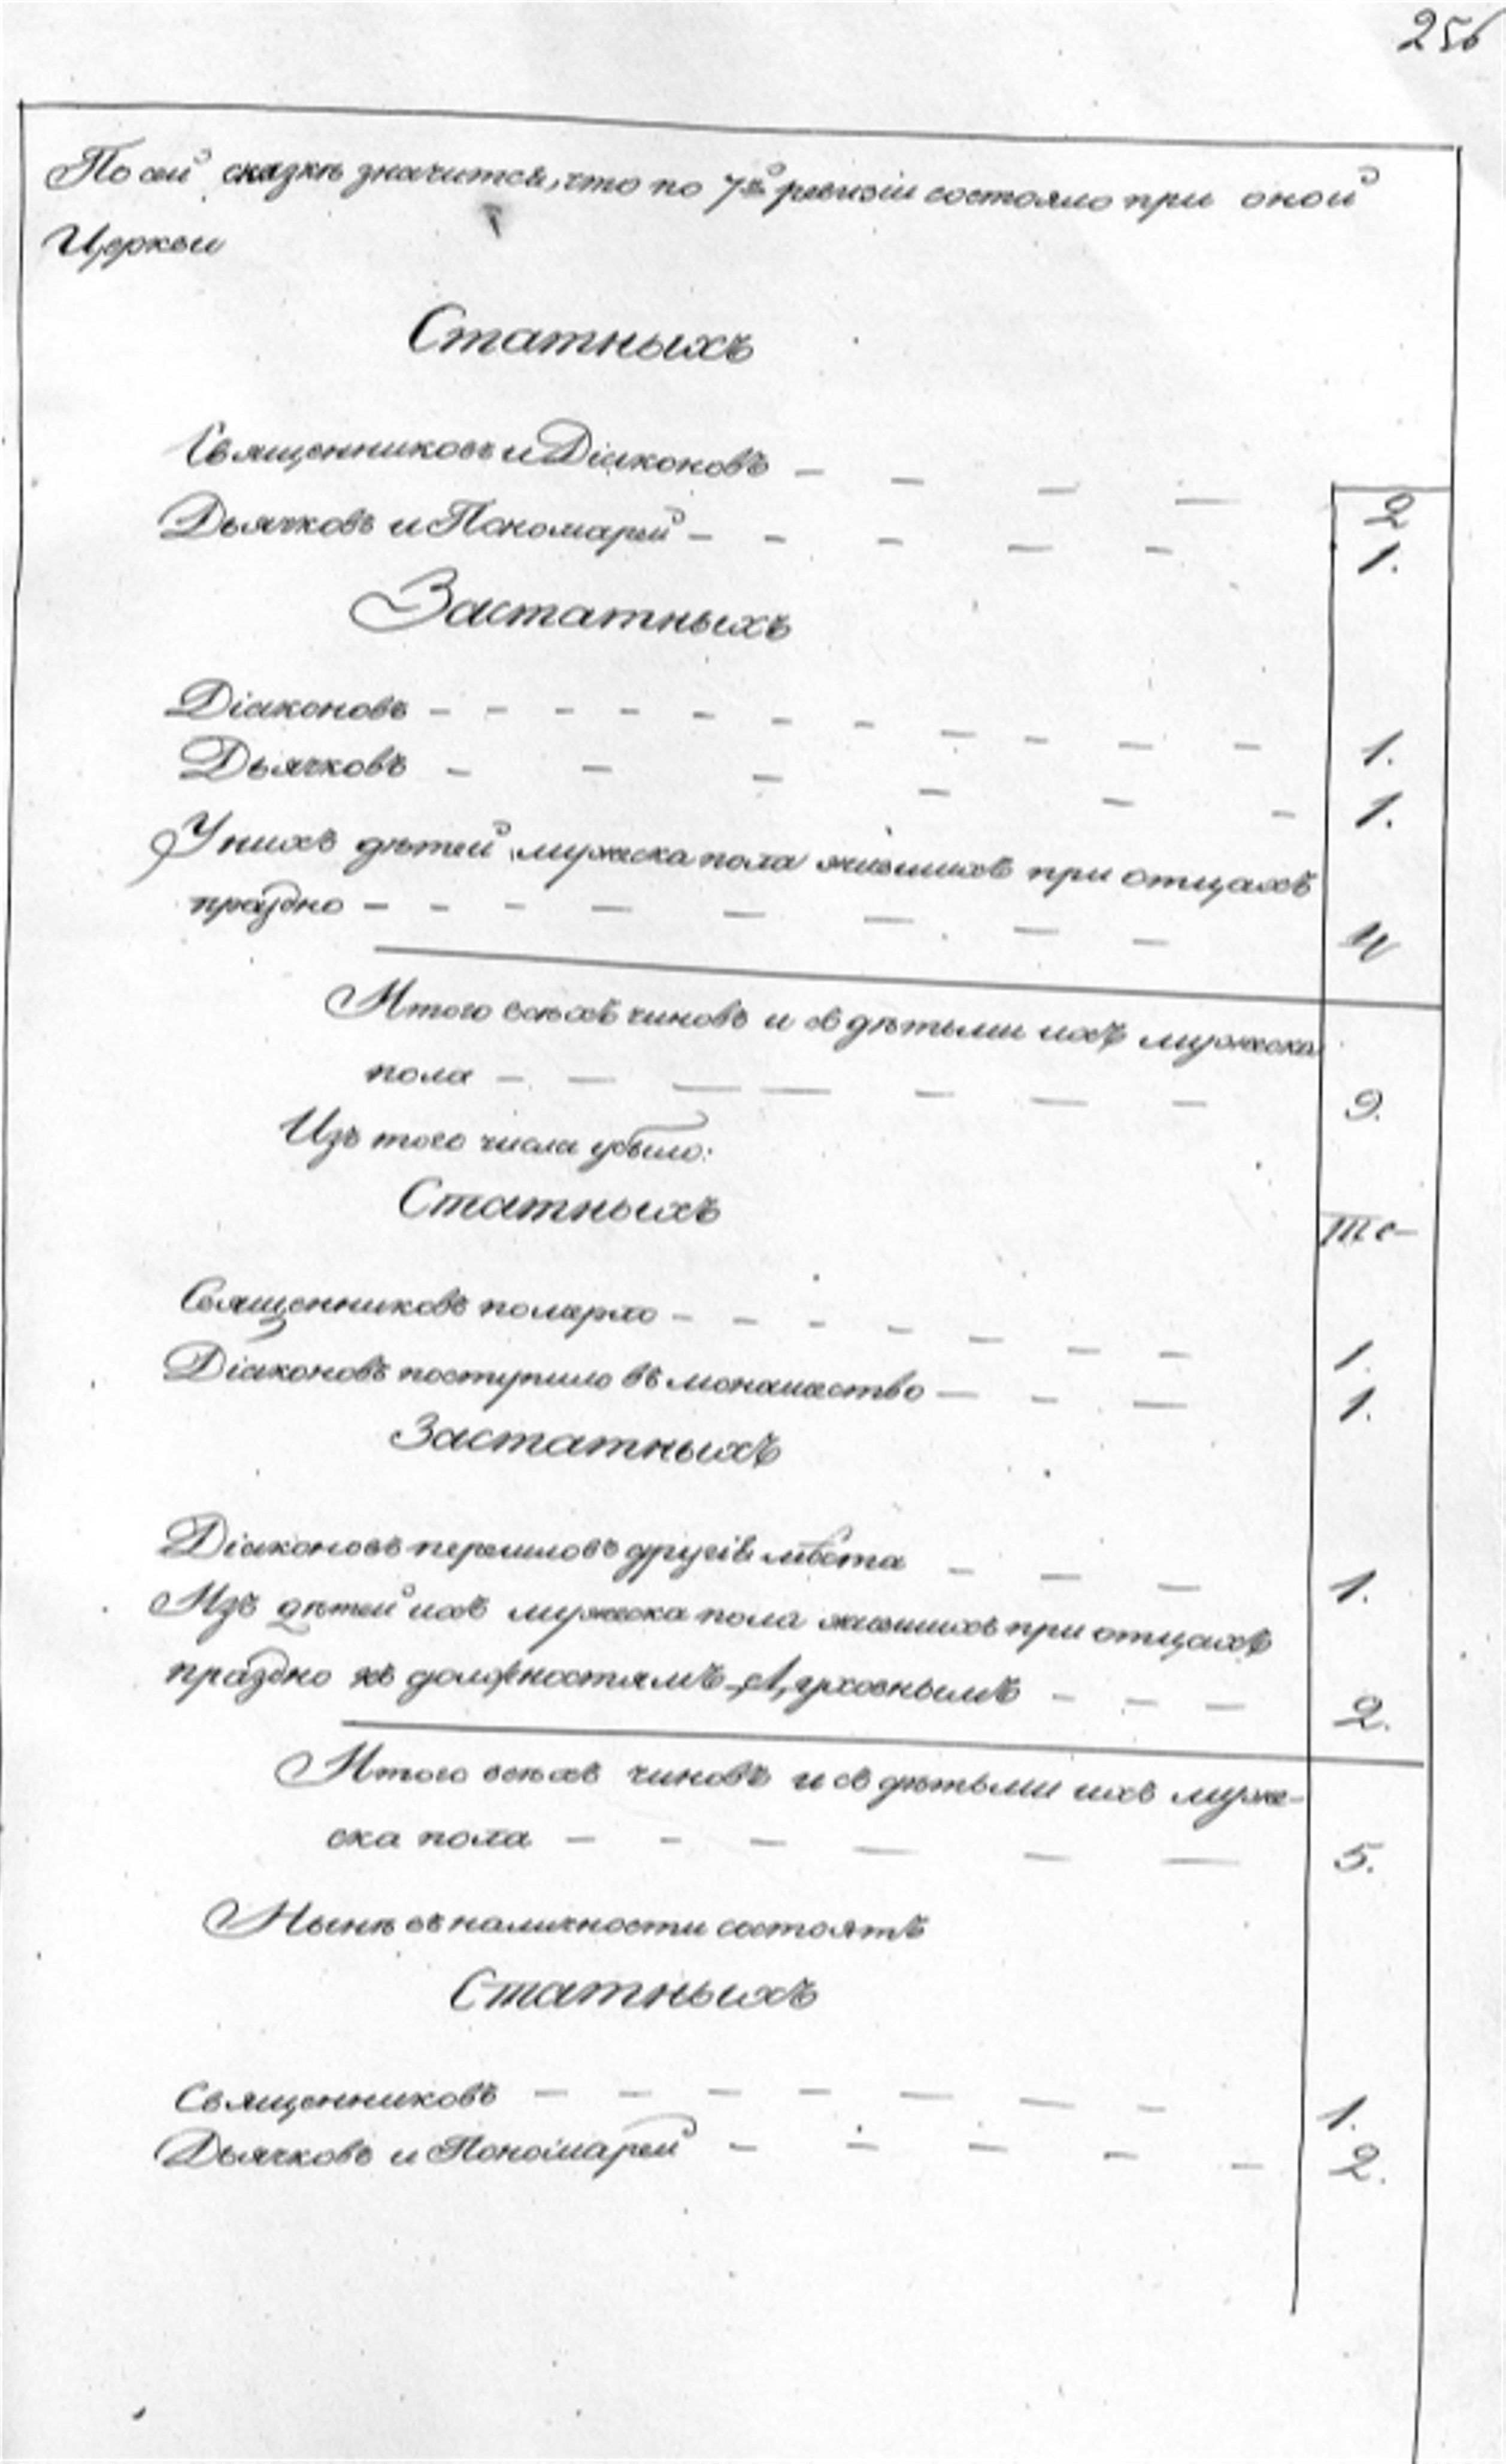 256
По сей сказкѣ значится, что по 7й ревизіи состояло при оной
Церкви
Статныхъ
Священниковъ и Діаконовъ — — — — 2
Дьячковъ и Пономарей — — — — — 1.
Застатныхъ
Діаконовъ — — — — — — — — — — — 1.
Дьячковъ — — — — — — 1.
У нихъ дѣтей мужеска пола жившихъ при отцахъ
праздно — — — — — — — — 4
Итого всѣхъ чиновъ и съ дѣтьми ихъ мужеска
пола — — — — — — — 9.
Изъ того числа убыло:
Статныхъ
Священниковъ померло — — — — — — — 1.
Діаконовъ поступило въ монашество — — — 1.
Застатныхъ
Діаконовъ перешло въ другія мѣста — — — 1.
Изъ дѣтей ихъ мужеска пола жившихъ при отцахъ
праздно къ должностямъ Церковнымъ — — — 2.
Итого всѣхъ чиновъ и съ дѣтьми ихъ муже-
ска пола — — — — — — 5.
Нынѣ въ наличности состоятъ
Статныхъ
Священниковъ — — — — — — — 1.
Дьячковъ и Пономарей — — — — — 2.